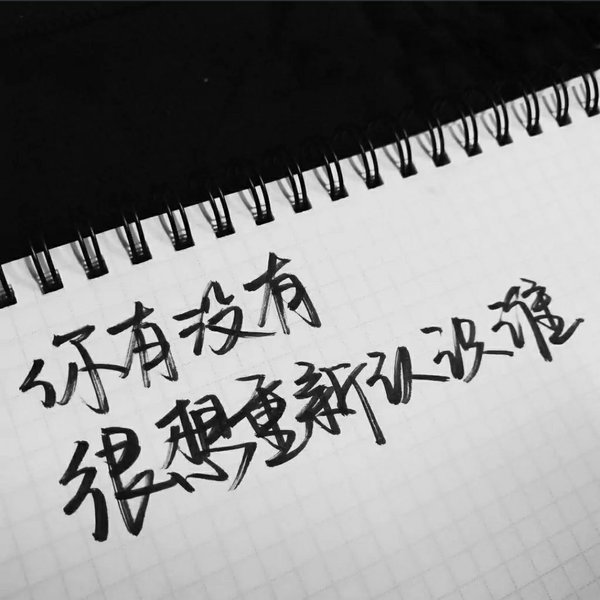 你有没有
很想重新认识谁